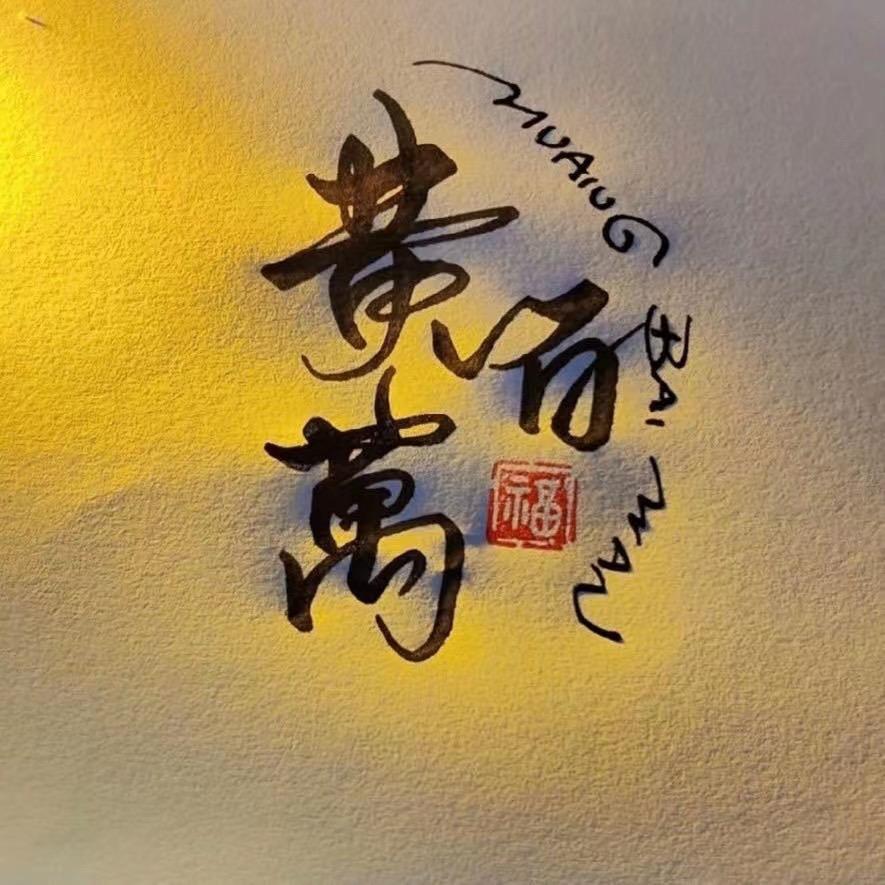 黄百萬
HUANG BAI WAN
福